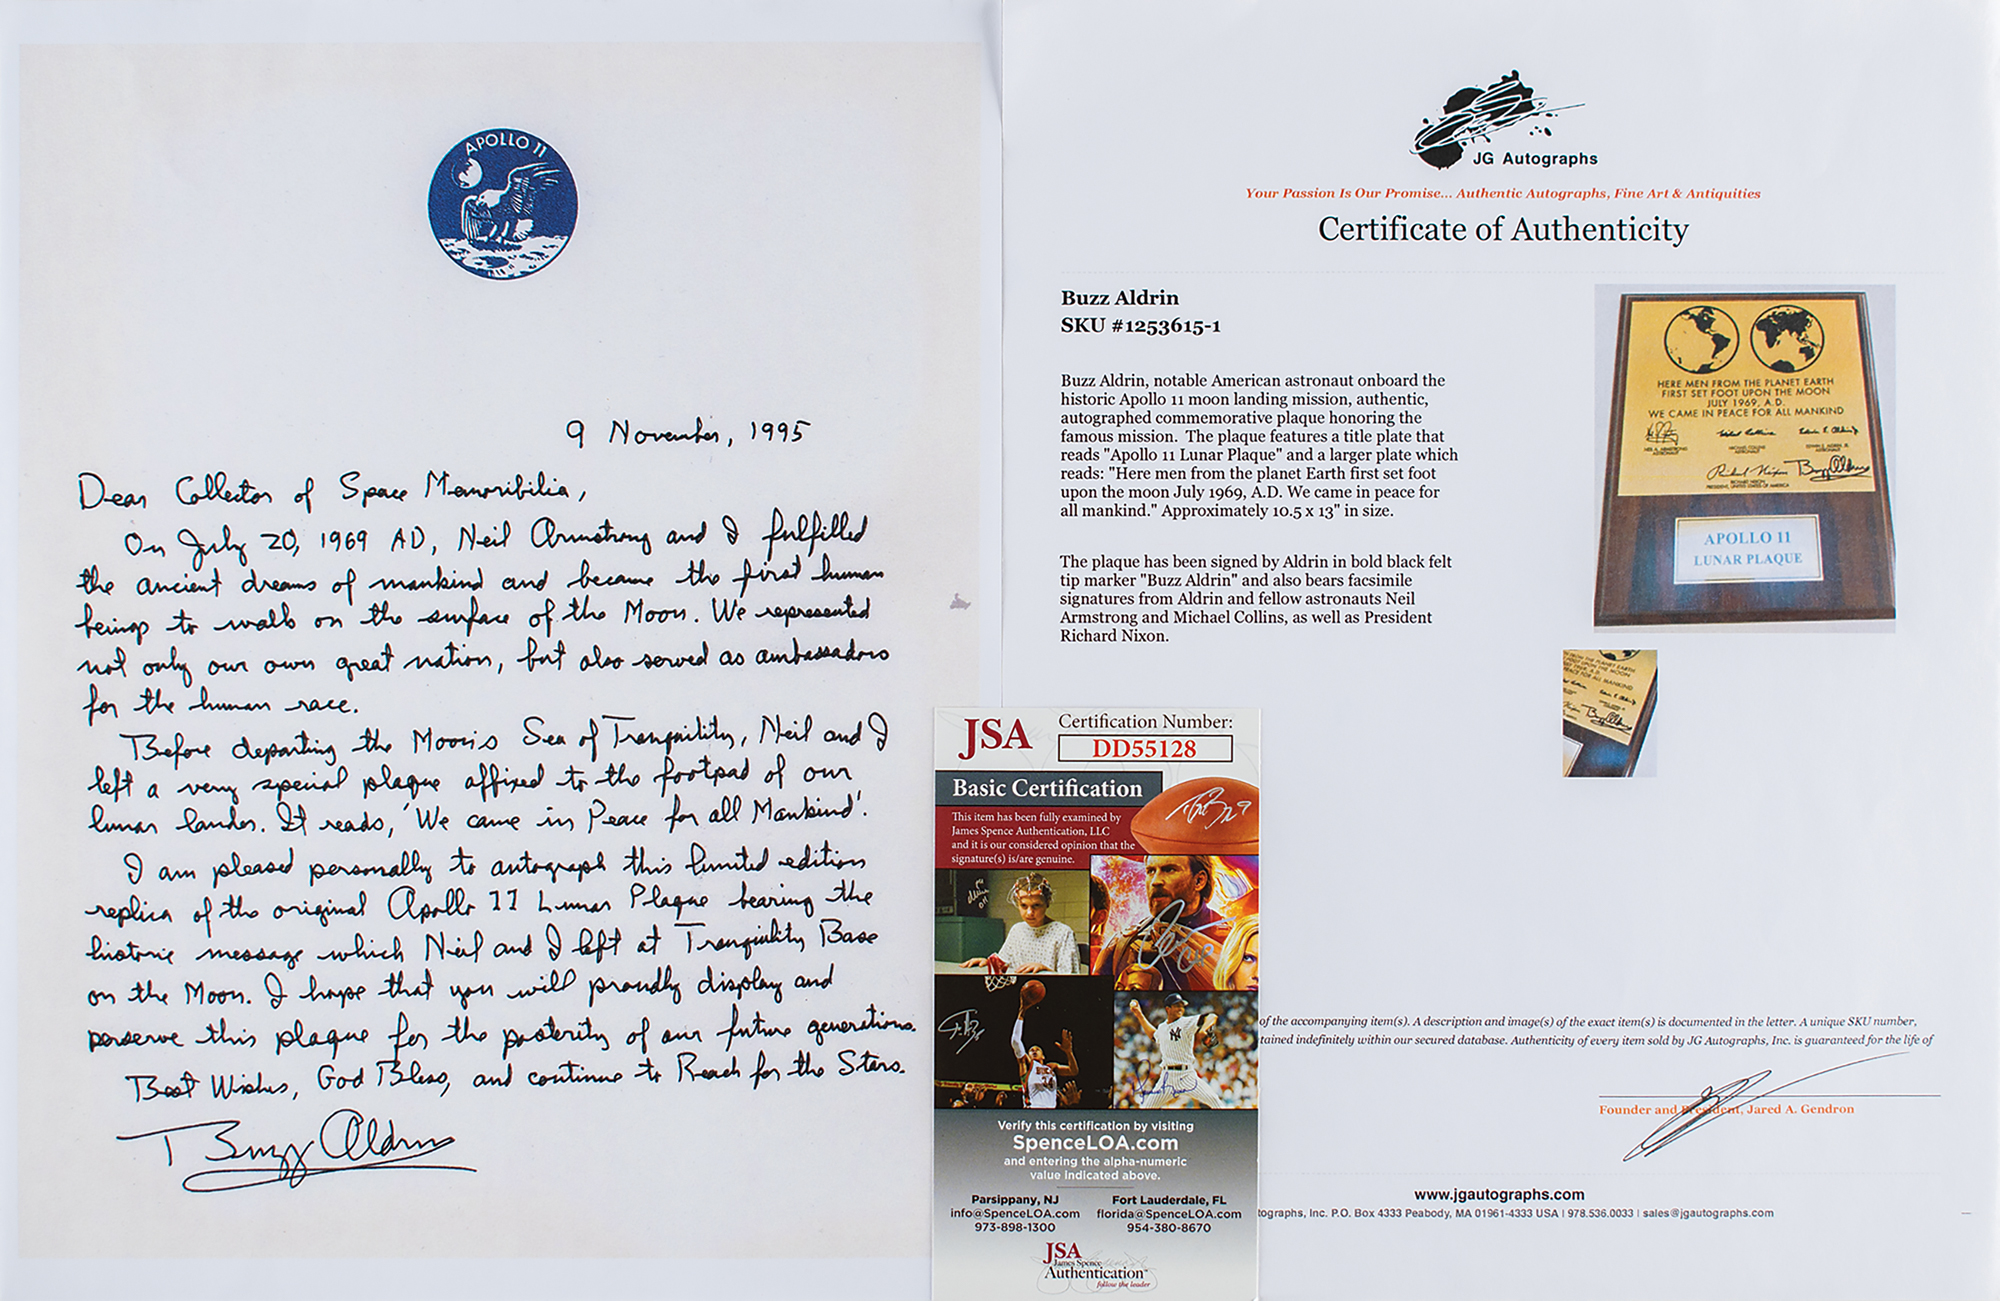 APOLLO 11
9 November, 1995
Dear Collector of Space Memoribilia,
On July 20, 1969 AD, Neil Armstrong and I fulfilled
the ancient dreams of mankind and became the first human
beings to walk on the surface of the Moon. We represented
not only our own great nation, but also served as ambassadors
for the human race.
Before departing the Moon's Sea of Tranquility, Neil and I
left a very special plaque affixed to the footpad of our
lunar lander. It reads, 'We came in Peace for all Mankind'.
I am pleased personally to autograph this limited edition
replica of the original Apollo 11 Lunar Plaque bearing the
historic message which Neil and I left at Tranquility Base
on the Moon. I hope that you will proudly display and
perserve this plaque for the posterity of our future generations.
Best Wishes, God Bless, and continue to Reach for the Stars.
Buzz Aldrin
JG Autographs
Your Passion Is Our Promise... Authentic Autographs, Fine Art & Antiquities
Certificate of Authenticity
Buzz Aldrin
SKU #1253615-1
Buzz Aldrin, notable American astronaut onboard the
historic Apollo 11 moon landing mission, authentic,
autographed commemorative plaque honoring the
famous mission.  The plaque features a title plate that
reads "Apollo 11 Lunar Plaque" and a larger plate which
reads: "Here men from the planet Earth first set foot
upon the moon July 1969, A.D. We came in peace for
all mankind." Approximately 10.5 x 13" in size.
The plaque has been signed by Aldrin in bold black felt
tip marker "Buzz Aldrin" and also bears facsimile
signatures from Aldrin and fellow astronauts Neil
Armstrong and Michael Collins, as well as President
Richard Nixon.
HERE MEN FROM THE PLANET EARTH
FIRST SET FOOT UPON THE MOON
JULY 1969, A.D.
WE CAME IN PEACE FOR ALL MANKIND
Michael Collins
Edwin E. Aldrin Jr
NEIL A. ARMSTRONG
ASTRONAUT
MICHAEL COLLINS
ASTRONAUT
EDWIN E. ALDRIN, JR.
ASTRONAUT
Richard Nixon
Buzz Aldrin
RICHARD NIXON
PRESIDENT, UNITED STATES OF AMERICA
APOLLO 11
LUNAR PLAQUE
of the accompanying item(s). A description and image(s) of the exact item(s) is documented in the letter. A unique SKU number,
tained indefinitely within our secured database. Authenticity of every item sold by JG Autographs, Inc. is guaranteed for the life of
Founder and President, Jared A. Gendron
www.jgautographs.com
tographs, Inc. P.O. Box 4333 Peabody, MA 01961-4333 USA | 978.536.0033 | sales@jgautographs.com
JSA
Certification Number:
DD55128
Basic Certification
This item has been fully examined by
James Spence Authentication, LLC
and it is our considered opinion that the
signature(s) is/are genuine.
Verify this certification by visiting
SpenceLOA.com
and entering the alpha-numeric
value indicated above.
Parsippany, NJ
info@SpenceLOA.com
973-898-1300
Fort Lauderdale, FL
florida@SpenceLOA.com
954-380-8670
JSA
James Spence
Authentication
follow the leader